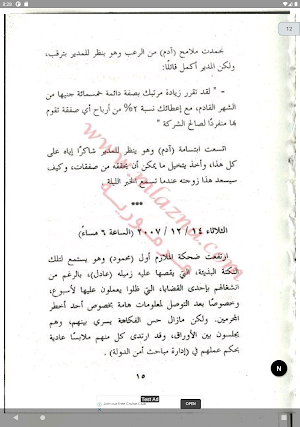 12
تجمدت ملامح (آدم) من الرعب وهو ينظر للمدير بترقب،
ولكن المدير أكمل قائلًا:
- " لقد تقرر زيادة مرتبك بصفة دائمة خمسمائة جنيها من
الشهر القادم، مع إعطائك نسبة ٢% من أرباح أي صفقة تقوم
بها منفردًا لصالح الشركة "
اتسعت ابتسامة (آدم) وهو ينظر للمدير شاكرًا إياه على
كل هذا، وأخذ يتخيل ما يمكن أن يحققه من صفقات، وكيف
سيسعد هذا زوجته عندما تسمع الخبر الليلة
***
الثلاثاء ١٤ / ١٢ / ٢٠٠٧ (الساعة ٦ مساءً)
ارتفعت ضحكة الملازم أول (محمود) وهو يستمع لتلك
النكتة البذيئة، التي يقصها عليه زميله (عادل)، بالرغم من
انشغالهم بإحدى القضايا، التي ظلوا يعملون عليها لأسبوع،
وخصوصًا بعد التوصل لمعلومات هامة بخصوص أحد أخطر
المجرمين. ولكن مازال حس الفكاهة يسري بينهم، وهم
يجلسون بين الأوراق، وقد ارتدى كل منهم ملابسًا عادية
بحكم عملهم في (إدارة مباحث أمن الدولة) .
١٥
N
Test Ad
OPEN